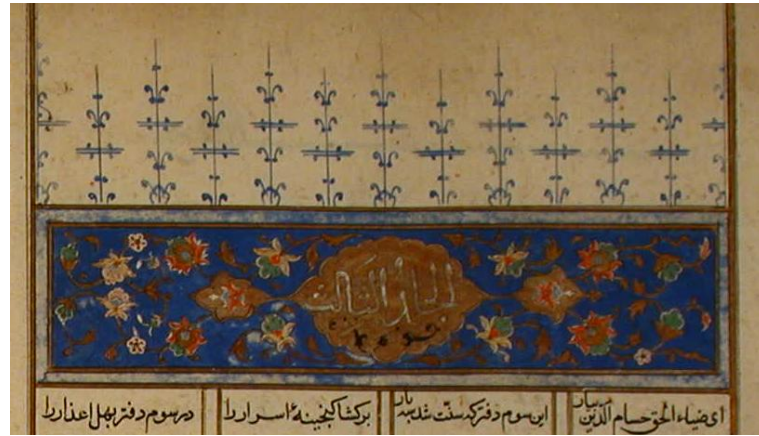 المجلد الثالث
ای ضیاء الحق حسام الدین بیار
این سوم دفتر که سنّت شد سه بار
برکشا کنجینهٔ اسرار را
در سوم دفتر بهل اعذار را